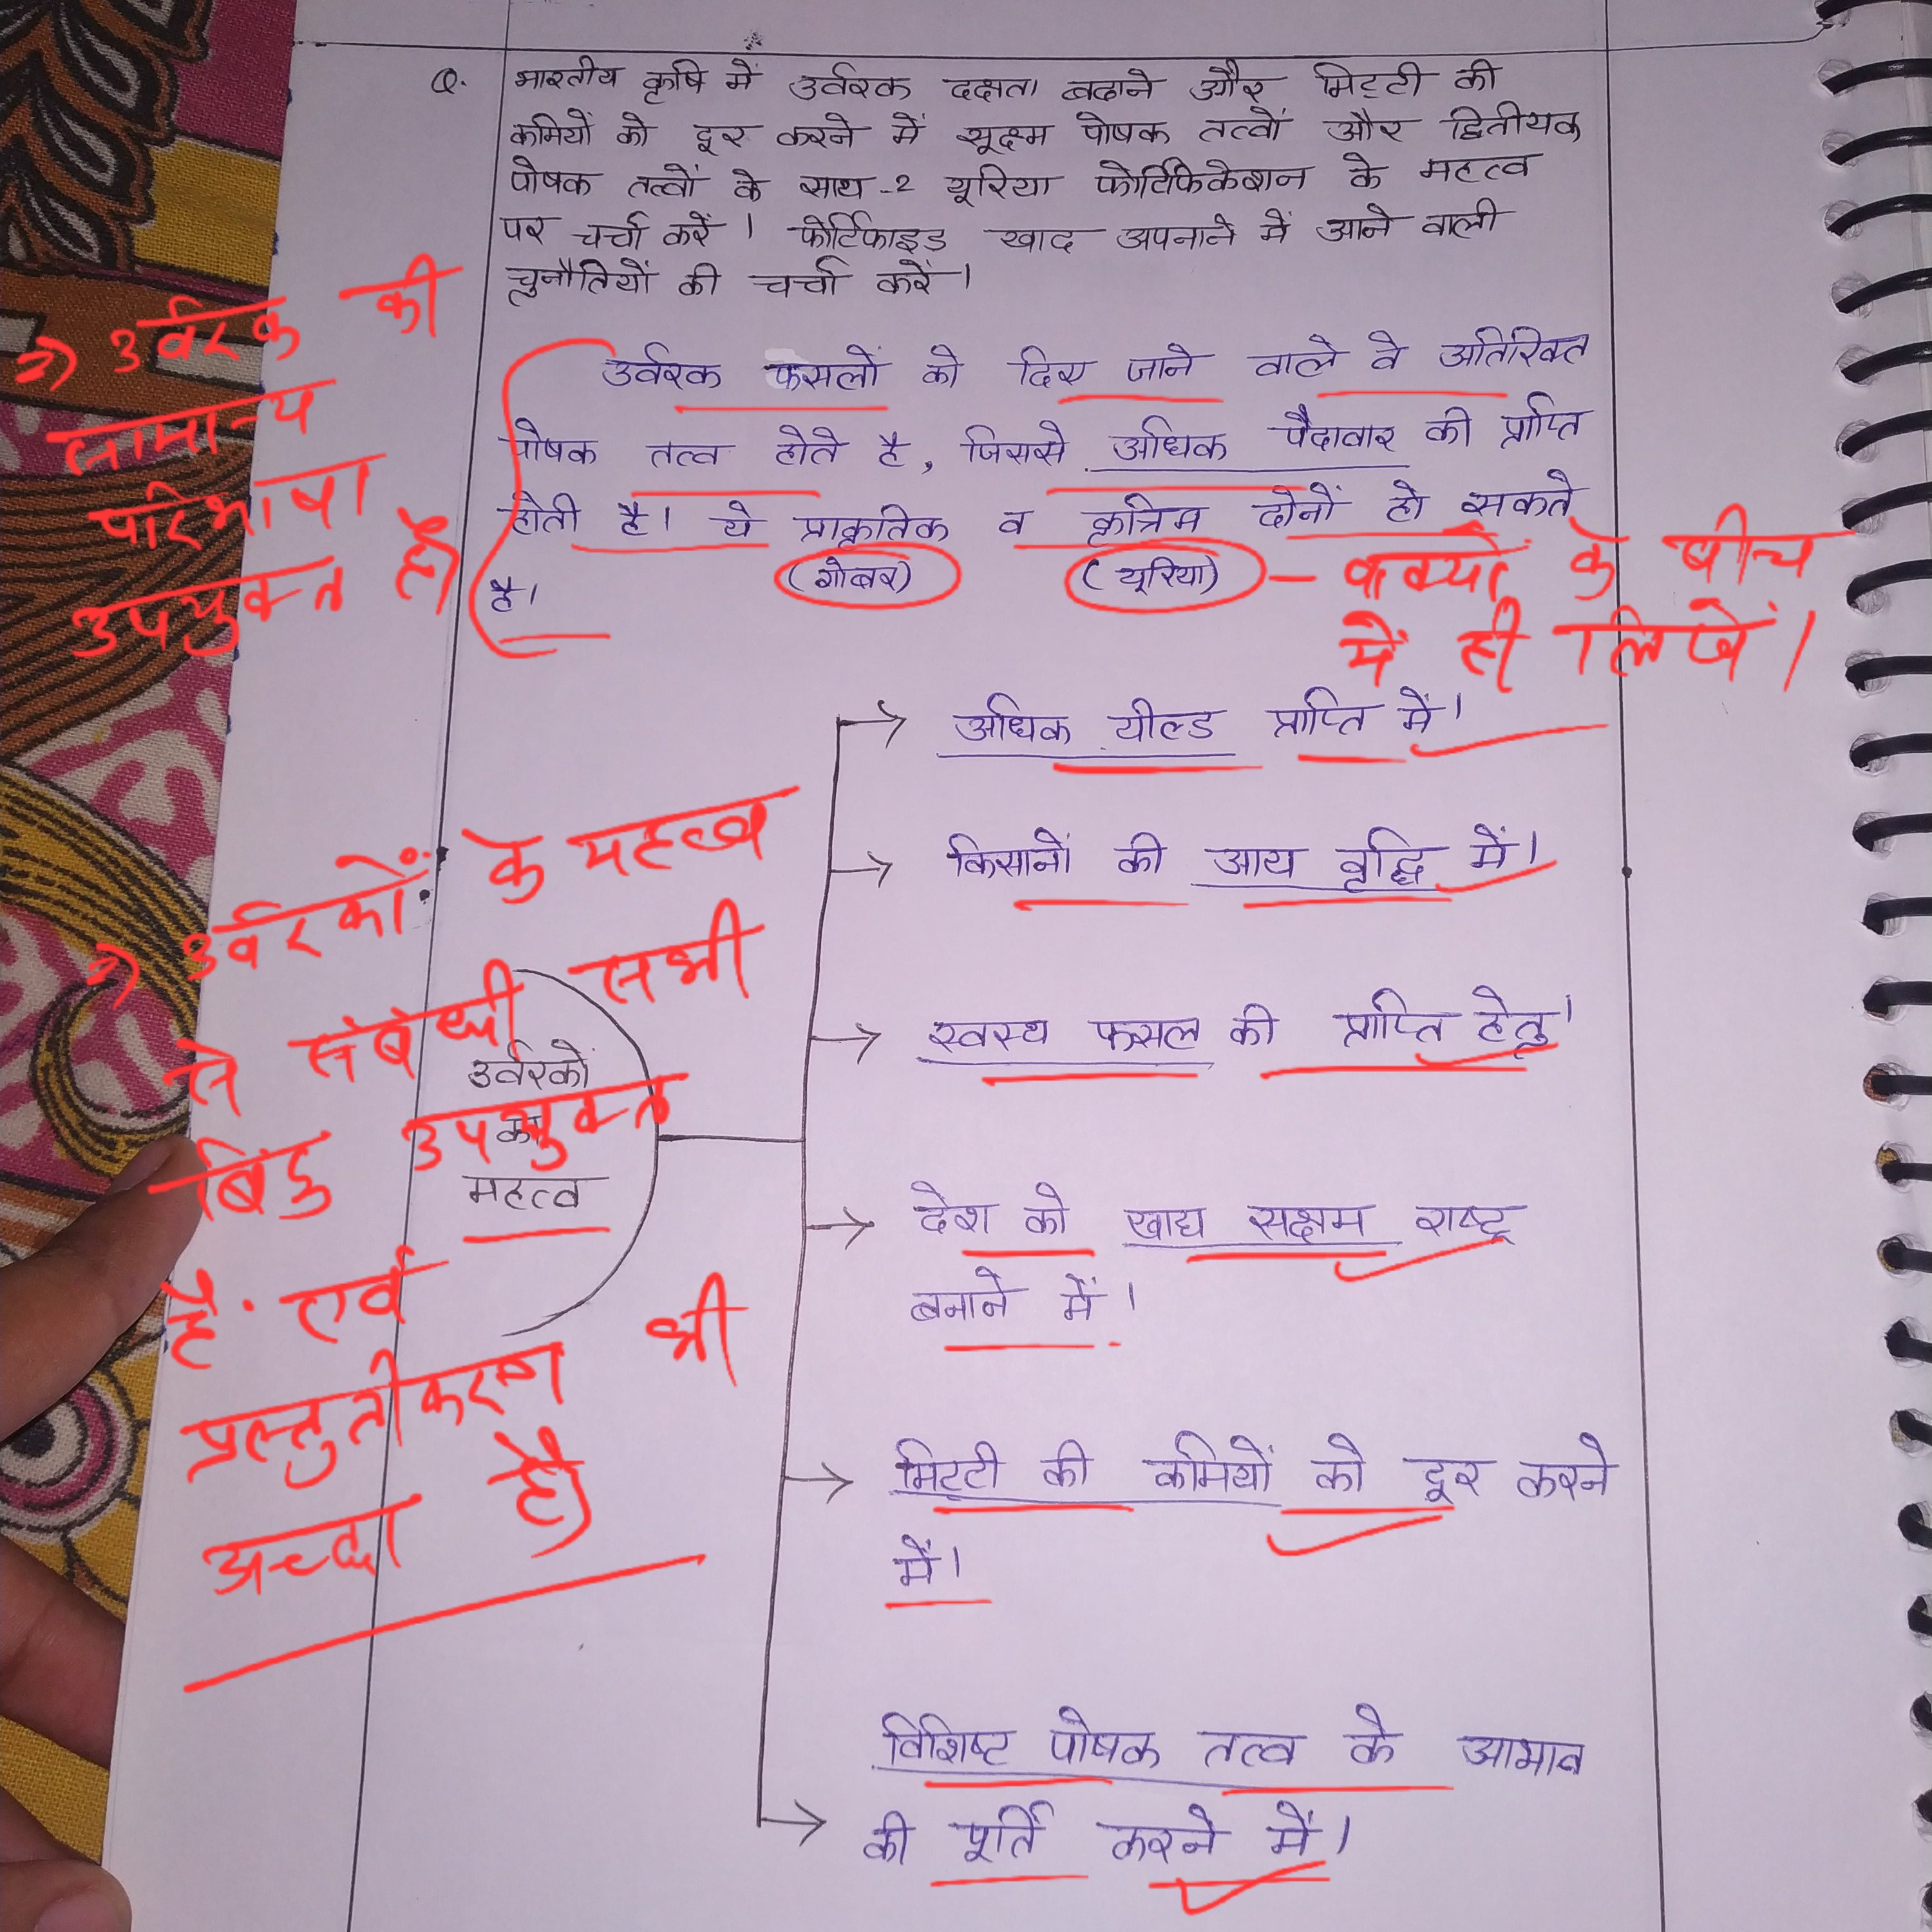 Q. भारतीय कृषि में उर्वरक दक्षता बढाने और मिट्टी की
कमियों को दूर करने में सूक्ष्म पोषक तत्वों और द्वितीयक
पोषक तत्वों के साथ-2 यूरिया फोर्टिफिकेशन के महत्व
पर चर्चा करें। फोर्टिफाइड खाद अपनाने में आने वाली
चुनौतियों की चर्चा करें।
उर्वरक फसलों को दिए जाने वाले वे अतिरिक्त
पोषक तत्व होते है, जिससे अधिक पैदावार की प्राप्ति
होती है। ये प्राकृतिक व कृत्रिम दोनों हो सकते
(गोबर) (यूरिया)
है।
उर्वरक की
सामान्य
परिभाषा
उपयुक्त है।
– वाक्यों के बीच
में ही लिखें।
उर्वरकों
का
महत्व
→ अधिक यील्ड प्राप्ति में।
→ किसानों की आय वृद्धि में।
→ स्वस्थ फसल की प्राप्ति हेतु।
→ देश को खाद्य सक्षम राष्ट्र
बनाने में।
→ मिट्टी की कमियों को दूर करने
में।
→ विशिष्ट पोषक तत्व के आभाव
की पूर्ति करने में।
उर्वरकों के महत्व
से संबंधी सभी
बिंदु उपयुक्त
हैं एवं
प्रस्तुतीकरण भी
अच्छा है।